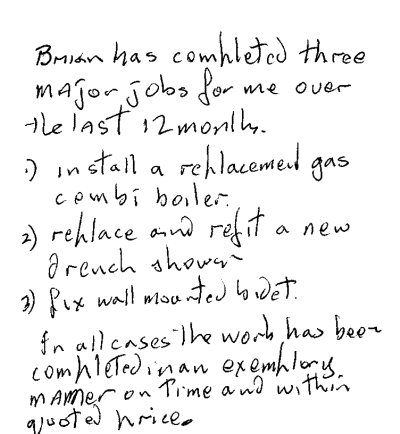 Brian has completed three
major jobs for me over
the last 12 months.
1) install a replacement gas
combi boiler.
2) replace and refit a new
drench shower
3) fix wall mounted bidet.
In all cases the work has been
completed in an exemplary
manner on time and within
quoted price.